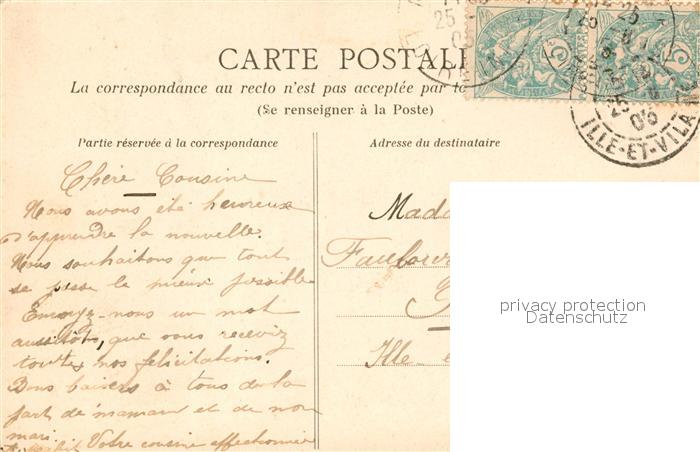 CARTE POSTALE
La correspondance au recto n'est pas acceptée par to
(Se renseigner à la Poste)
Partie réservée à la correspondance
Adresse du destinataire
Chère Cousine
Nous avons été heureux
d'apprendre la nouvelle.
Nous souhaitons que tout
se passe le mieux possible
Envoyez-nous un mot
aussitôt, que vous recevez
toutes nos félicitations.
Bons baisers à tous de la
part de maman et de mon
mari. Votre cousine affectionnée
Mada
Faubour
Ille-
privacy protection
Datenschutz
25
05
5
5
25
05
ILLE-ET-VILA